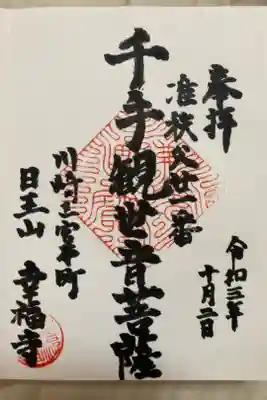 奉拝
准秩父廿一番
千手観世音菩薩
川崎宮本町
日王山 幸福寺
令和三年
十月二日